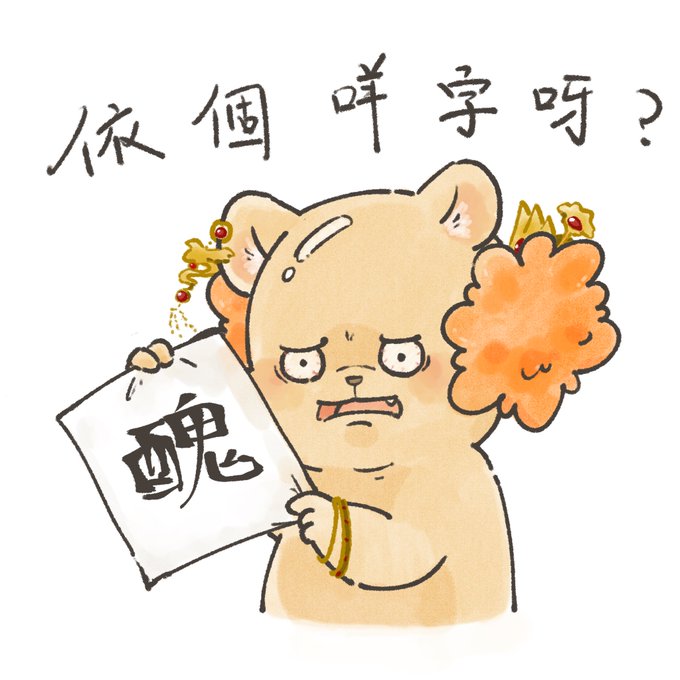 依個咩字呀？
醜